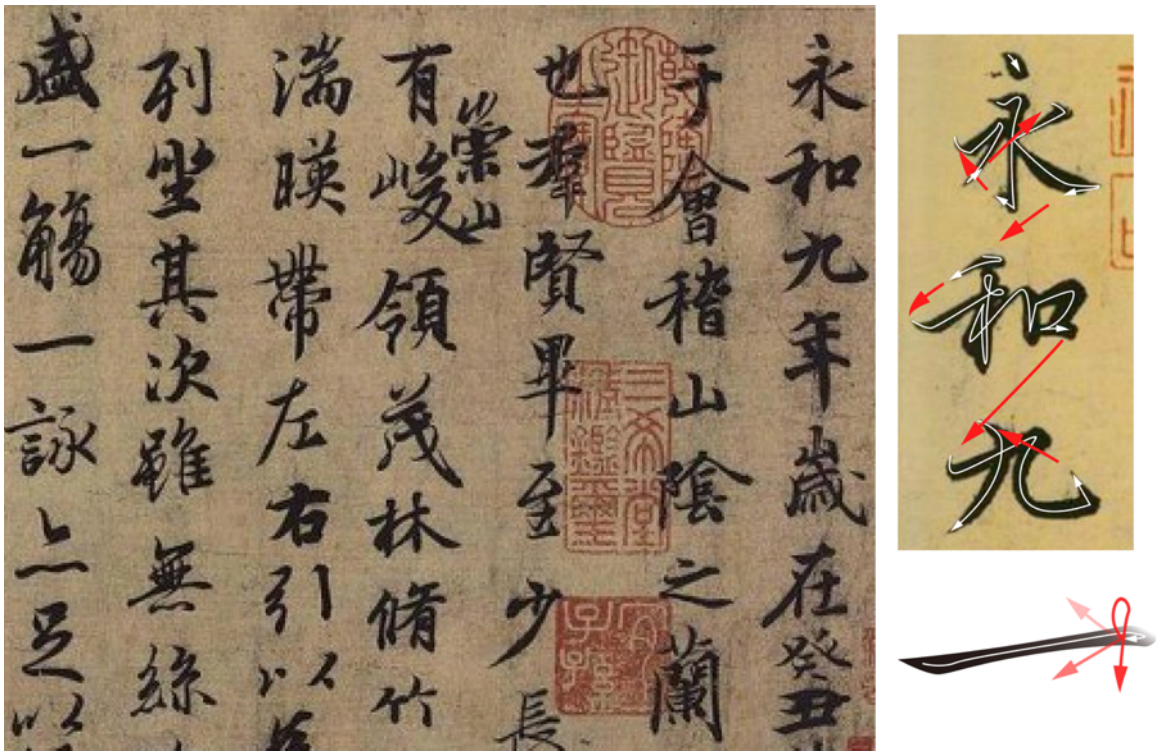 永和九年歲在癸丑
于會稽山陰之蘭
也羣賢畢至少長
有崇山峻領茂林脩竹
湍暎帶左右引以
列坐其次雖無絲
盛一觴一詠亦足以
三希堂
精鑑璽
宜子孫
永和九